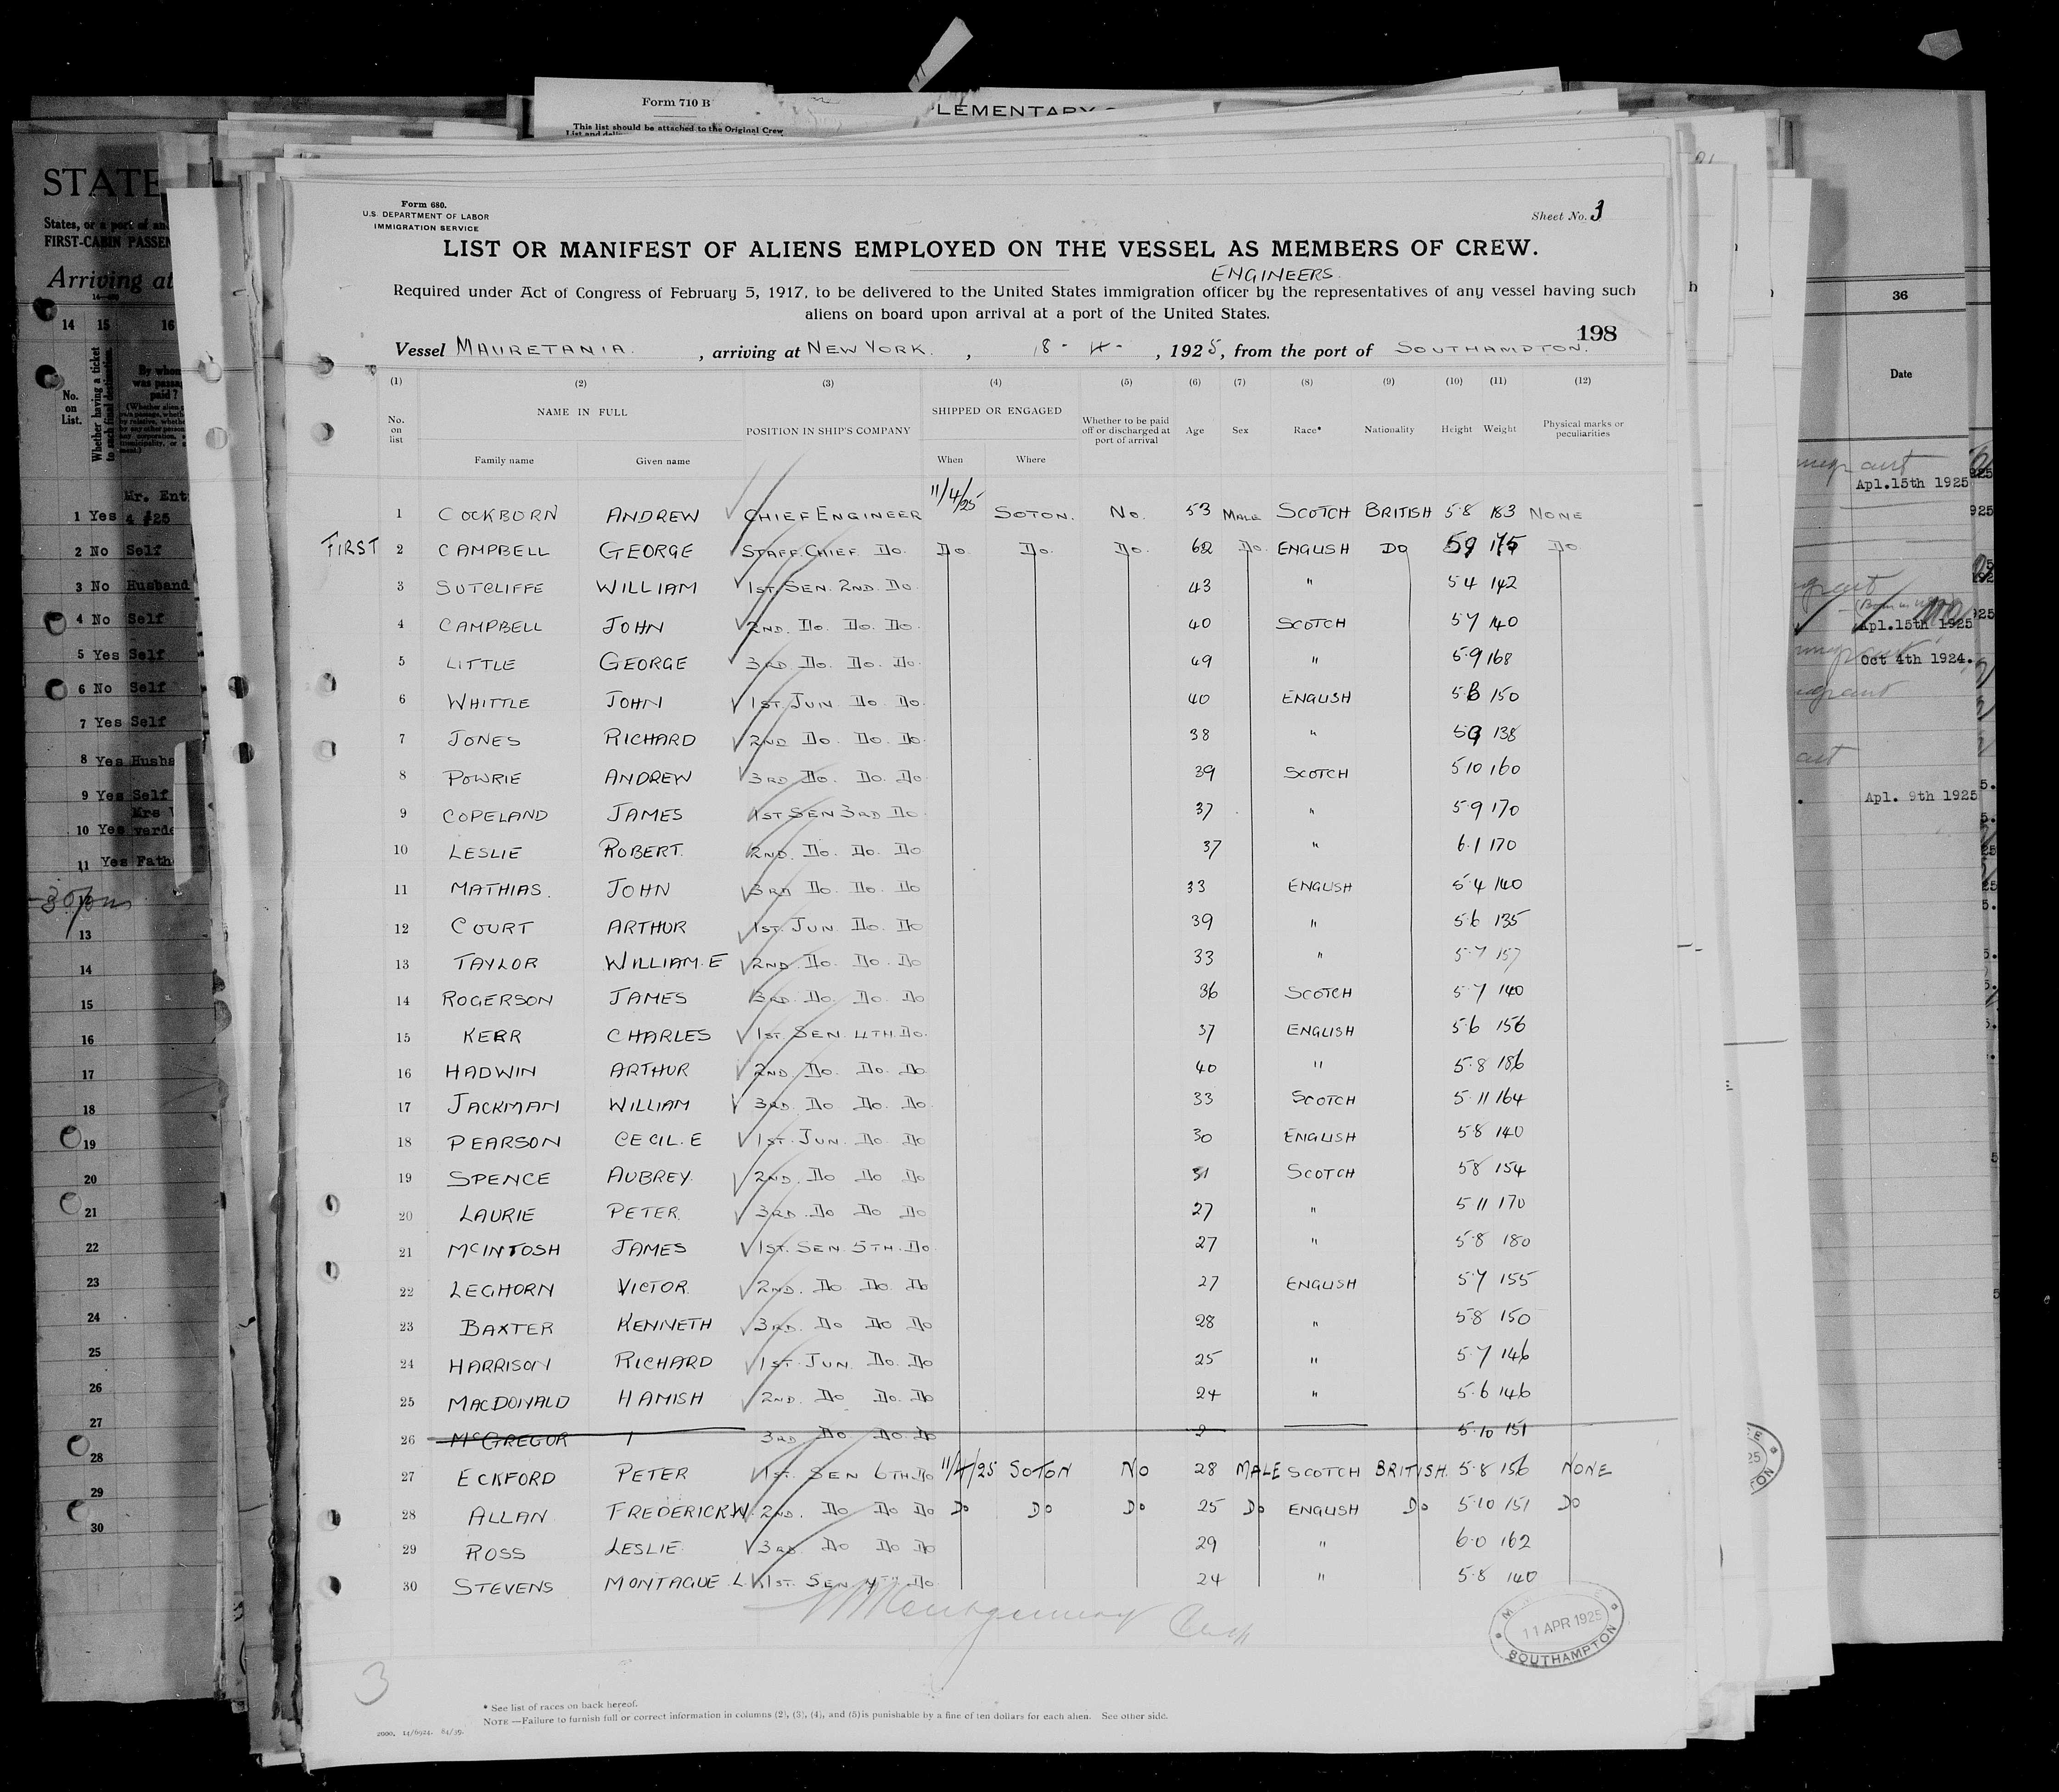 Form 710 B
This list should be attached to the Original Crew
LEMENTARY
STATE
States, or a port of an
FIRST-CABIN PASSEN
Arriving at
14 15 16
No. on List.
Whether having a ticket to such final destination.
By whom was passage paid?
1 Yes Mr. Ent
2 No Self
3 No Husband
4 No Self
5 Yes Self
6 No Self
7 Yes Self
8 Yes Husba
9 Yes Self
10 Yes Mrs
11 Yes Fath
13
14
15
16
17
18
19
20
21
22
23
24
25
26
27
28
29
30
Form 680.
U.S. DEPARTMENT OF LABOR
IMMIGRATION SERVICE
Sheet No. 3
LIST OR MANIFEST OF ALIENS EMPLOYED ON THE VESSEL AS MEMBERS OF CREW.
ENGINEERS.
Required under Act of Congress of February 5, 1917, to be delivered to the United States immigration officer by the representatives of any vessel having such
aliens on board upon arrival at a port of the United States.
198
Vessel MAURETANIA. , arriving at NEW YORK. , 18 - 4 - , 1925, from the port of SOUTHAMPTON.
(1) (2) (3) (4) (5) (6) (7) (8) (9) (10) (11) (12)
No. on list NAME IN FULL POSITION IN SHIP'S COMPANY SHIPPED OR ENGAGED Whether to be paid off or discharged at port of arrival Age Sex Race* Nationality Height Weight Physical marks or peculiarities
Family name Given name When Where
1 COCKBURN ANDREW CHIEF ENGINEER 11/4/25 SOTON. No. 53 MALE SCOTCH BRITISH 5·8 183 NONE
FIRST 2 CAMPBELL GEORGE STAFF.CHIEF. Do. Do. Do. Do. 62 Do. ENGLISH DO 59 175 Do
3 SUTCLIFFE WILLIAM 1ST SEN. 2ND. Do. 43 " 5 4 142
4 CAMPBELL JOHN 2ND. Do. Do. Do. 40 SCOTCH 5 7 140
5 LITTLE GEORGE 3RD Do. Do. Do. 49 " 5·9 168
6 WHITTLE JOHN 1ST. JUN. Do Do. 40 ENGLISH 5·8 150
7 JONES RICHARD 2ND Do. Do. Do. 38 " 59 138
8 POWRIE ANDREW 3RD Do. Do. Do. 39 SCOTCH 5 10 160
9 COPELAND JAMES 1ST SEN 3RD Do. 37 " 5·9 170
10 LESLIE ROBERT. 2ND. Do. Do. Do 37 " 6·1 170
11 MATHIAS. JOHN 3RD Do. Do. Do 33 ENGLISH 5·4 140
12 COURT ARTHUR 1ST. JUN. Do. Do 39 " 5·6 135
13 TAYLOR WILLIAM. E 2ND. Do. Do. Do 33 " 5·7 157
14 ROGERSON JAMES 3RD. Do. Do. Do 36 SCOTCH 5 7 140
15 KERR CHARLES 1ST. SEN. 4TH. Do. 37 ENGLISH 5·6 156
16 HADWIN ARTHUR 2ND. Do. Do. Do 40 " 5·8 186
17 JACKMAN WILLIAM 3RD. Do Do. Do. 33 SCOTCH 5·11 164
18 PEARSON CECIL. E 1ST. JUN. Do. Do 30 ENGLISH 5·8 140
19 SPENCE AUBREY. 2ND. Do Do Do 31 SCOTCH 58 154
20 LAURIE PETER. 3RD. Do Do Do 27 " 5 11 170
21 McINTOSH JAMES 1ST. SEN. 5TH. Do 27 " 5·8 180
22 LEGHORN VICTOR. 2ND. Do Do Do 27 ENGLISH 5·7 155
23 BAXTER KENNETH 3RD. Do Do Do 28 " 5·8 150
24 HARRISON RICHARD 1ST. JUN. Do. Do 25 " 5·7 146
25 MACDONALD HAMISH 2ND. Do Do. Do 24 " 5·6 146
26 McGREGOR 3RD Do Do. Do 5·10 151
27 ECKFORD PETER 1ST. SEN 6TH. Do 11/4/25 SOTON NO 28 MALE SCOTCH BRITISH. 5·8 156 NONE
28 ALLAN FREDERICK.W. 2ND. Do Do Do Do Do Do 25 Do ENGLISH Do 5·10 151 Do
29 ROSS LESLIE. 3RD. Do Do Do 29 " 6·0 162
30 STEVENS MONTAGUE L. 1ST. SEN 4TH Do 24 " 5·8 140
11 APR 1925
SOUTHAMPTON
3
* See list of races on back hereof.
NOTE —Failure to furnish full or correct information in columns (2), (3), (4), and (5) is punishable by a fine of ten dollars for each alien. See other side.
36
Date
Apl.15th 1925
Apl.15th 1925
Oct 4th 1924.
Apl. 9th 1925